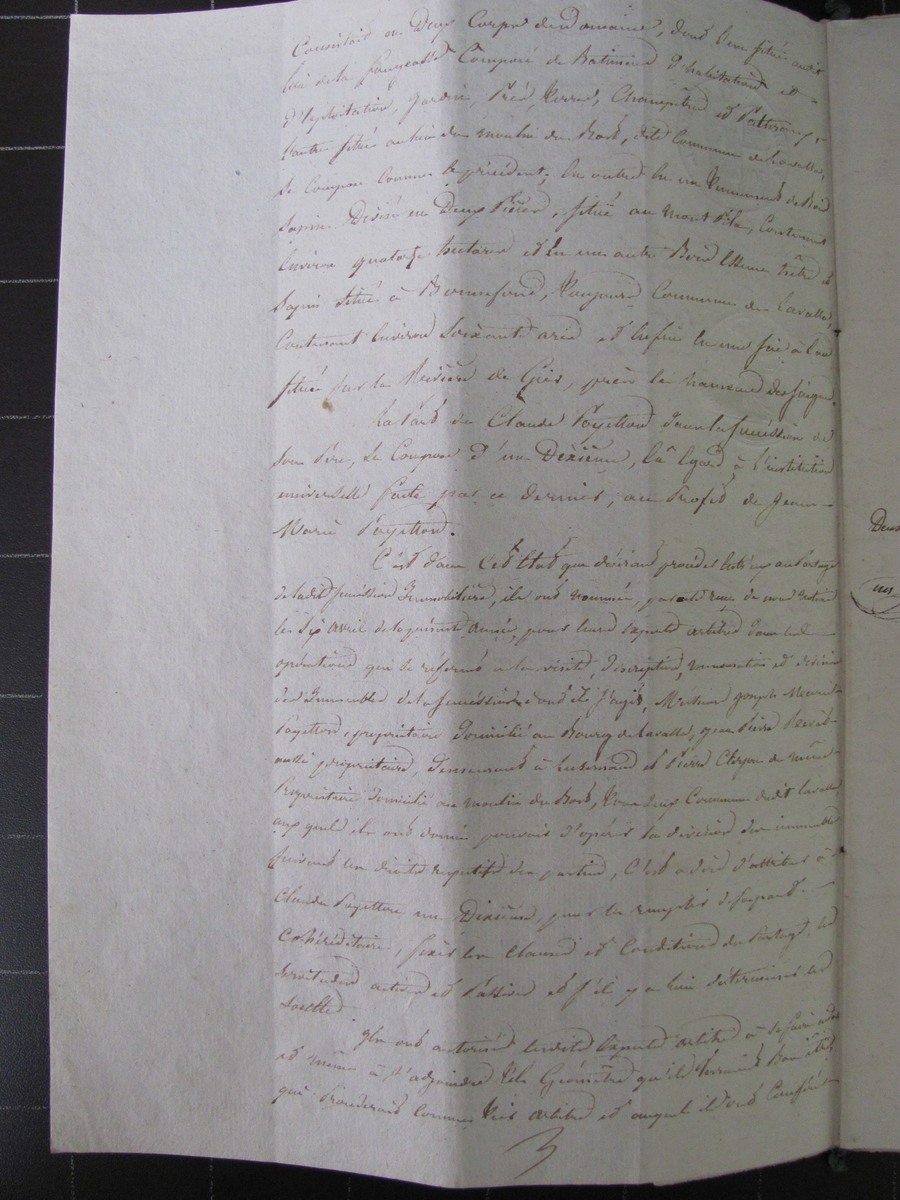 Consistait en Deux Corps de Domaine, dont l'un situé audit
lieu de la Composé de Batiments d'habitation et
d'Exploitation, Jardin, Pré Verger, Champêtre et Patteraux,
l'autre situé au lieu du moulin du Bost, dite Commune de Lavalla,
Se Compose Comme le précédent; En outre En un Tennement de Bois
Sapin Divisé en Deux Pièces, situé au mont Pila, Contenant
Environ quatorze hectares et En un autre Bois Essence hêtre &
Sapin situé à Bonnefond, Commune de Lavalla
Contenant Environ Soixante ares et Enfin En une scie à l'eau
située sur la Rivière de Gier, près le hameau des Saignes.
La Part de Claude Payetton dans la succession de
Son Père, se Compose d'un Dixième, En Egard à l'institution
universelle faite par ce dernier, au Profit de Jean
Marie Payetton.
C'est dans Cet Etat que désirant procéder Entr'eux au Partage
de ladite succession Immobilière, ils ont nommé, par acte reçu de nous notaire
le Six avril de la présente année, pour leurs Experts arbitres dans les
opérations qui se réfèrent à la visite, Description, Numération et division
des Immeubles de la succession dont il s'agit, Messieurs Joseph Marie
Payetton, propriétaire Domicilié au Bourg de Lavalla, Jean Pierre
propriétaire, Demeurant à Luzernaud et Pierre de même
Propriétaire Domicilié au moulin du Bost, Tous deux Commune dudit Lavalla,
auxquels ils ont donné pouvoir d'opérer la division des immeubles
suivant les droits respectifs des parties, C'est à dire d'attribuer à
Claude Payetton un Dixième, pour le remplir de sa part
Cohéréditaire, fixer les Clauses et Conditions du Partage, les
Servitudes actives et Passives et s'il y a lieu déterminer les
Soultes.
Ils ont autorisés lesdits Experts arbitres à se faire aider
et même à s'adjoindre tels Géomètre qu'ils Jugeront Bon être
qui Procéderait Comme tiers arbitre et auquel ils ont Conféré
3